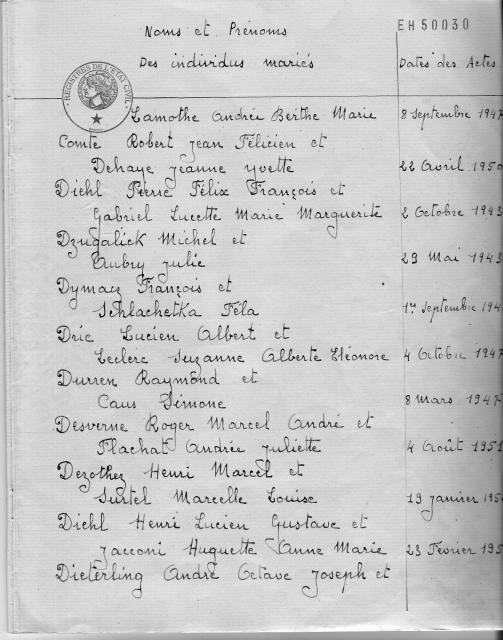 EH50030
Noms et Prénoms
Des individus mariés Dates des Actes
REGISTRES DE L'ETAT CIVIL
Lamothe Andrée Berthe Marie 8 Septembre 1947
Comte Robert Jean Félicien et
Dehaye Jeanne Yvette 22 Avril 1950
Diehl Pierre Félix François et
Gabriel Lucette Marie Marguerite 2 Octobre 1943
Dzugalick Michel et
Aubry Julie 29 Mai 1943
Dymacz François et
Schlachetka Féla 1er Septembre 194
Dric Lucien Albert et
Leclerc Suzanne Alberte Eléonore 4 Octobre 1947
Durren Raymond et
Caus Simone 8 Mars 1947
Desverne Roger Marcel André et
Flachat Andrée Juliette 4 Août 1951
Dezothez Henri Marcel et
Surtel Marcelle Louise 19 Janvier 195
Diehl Henri Lucien Gustave et
Jacconi Huguette Anne Marie 23 Février 195
Dieterling André Octave Joseph et